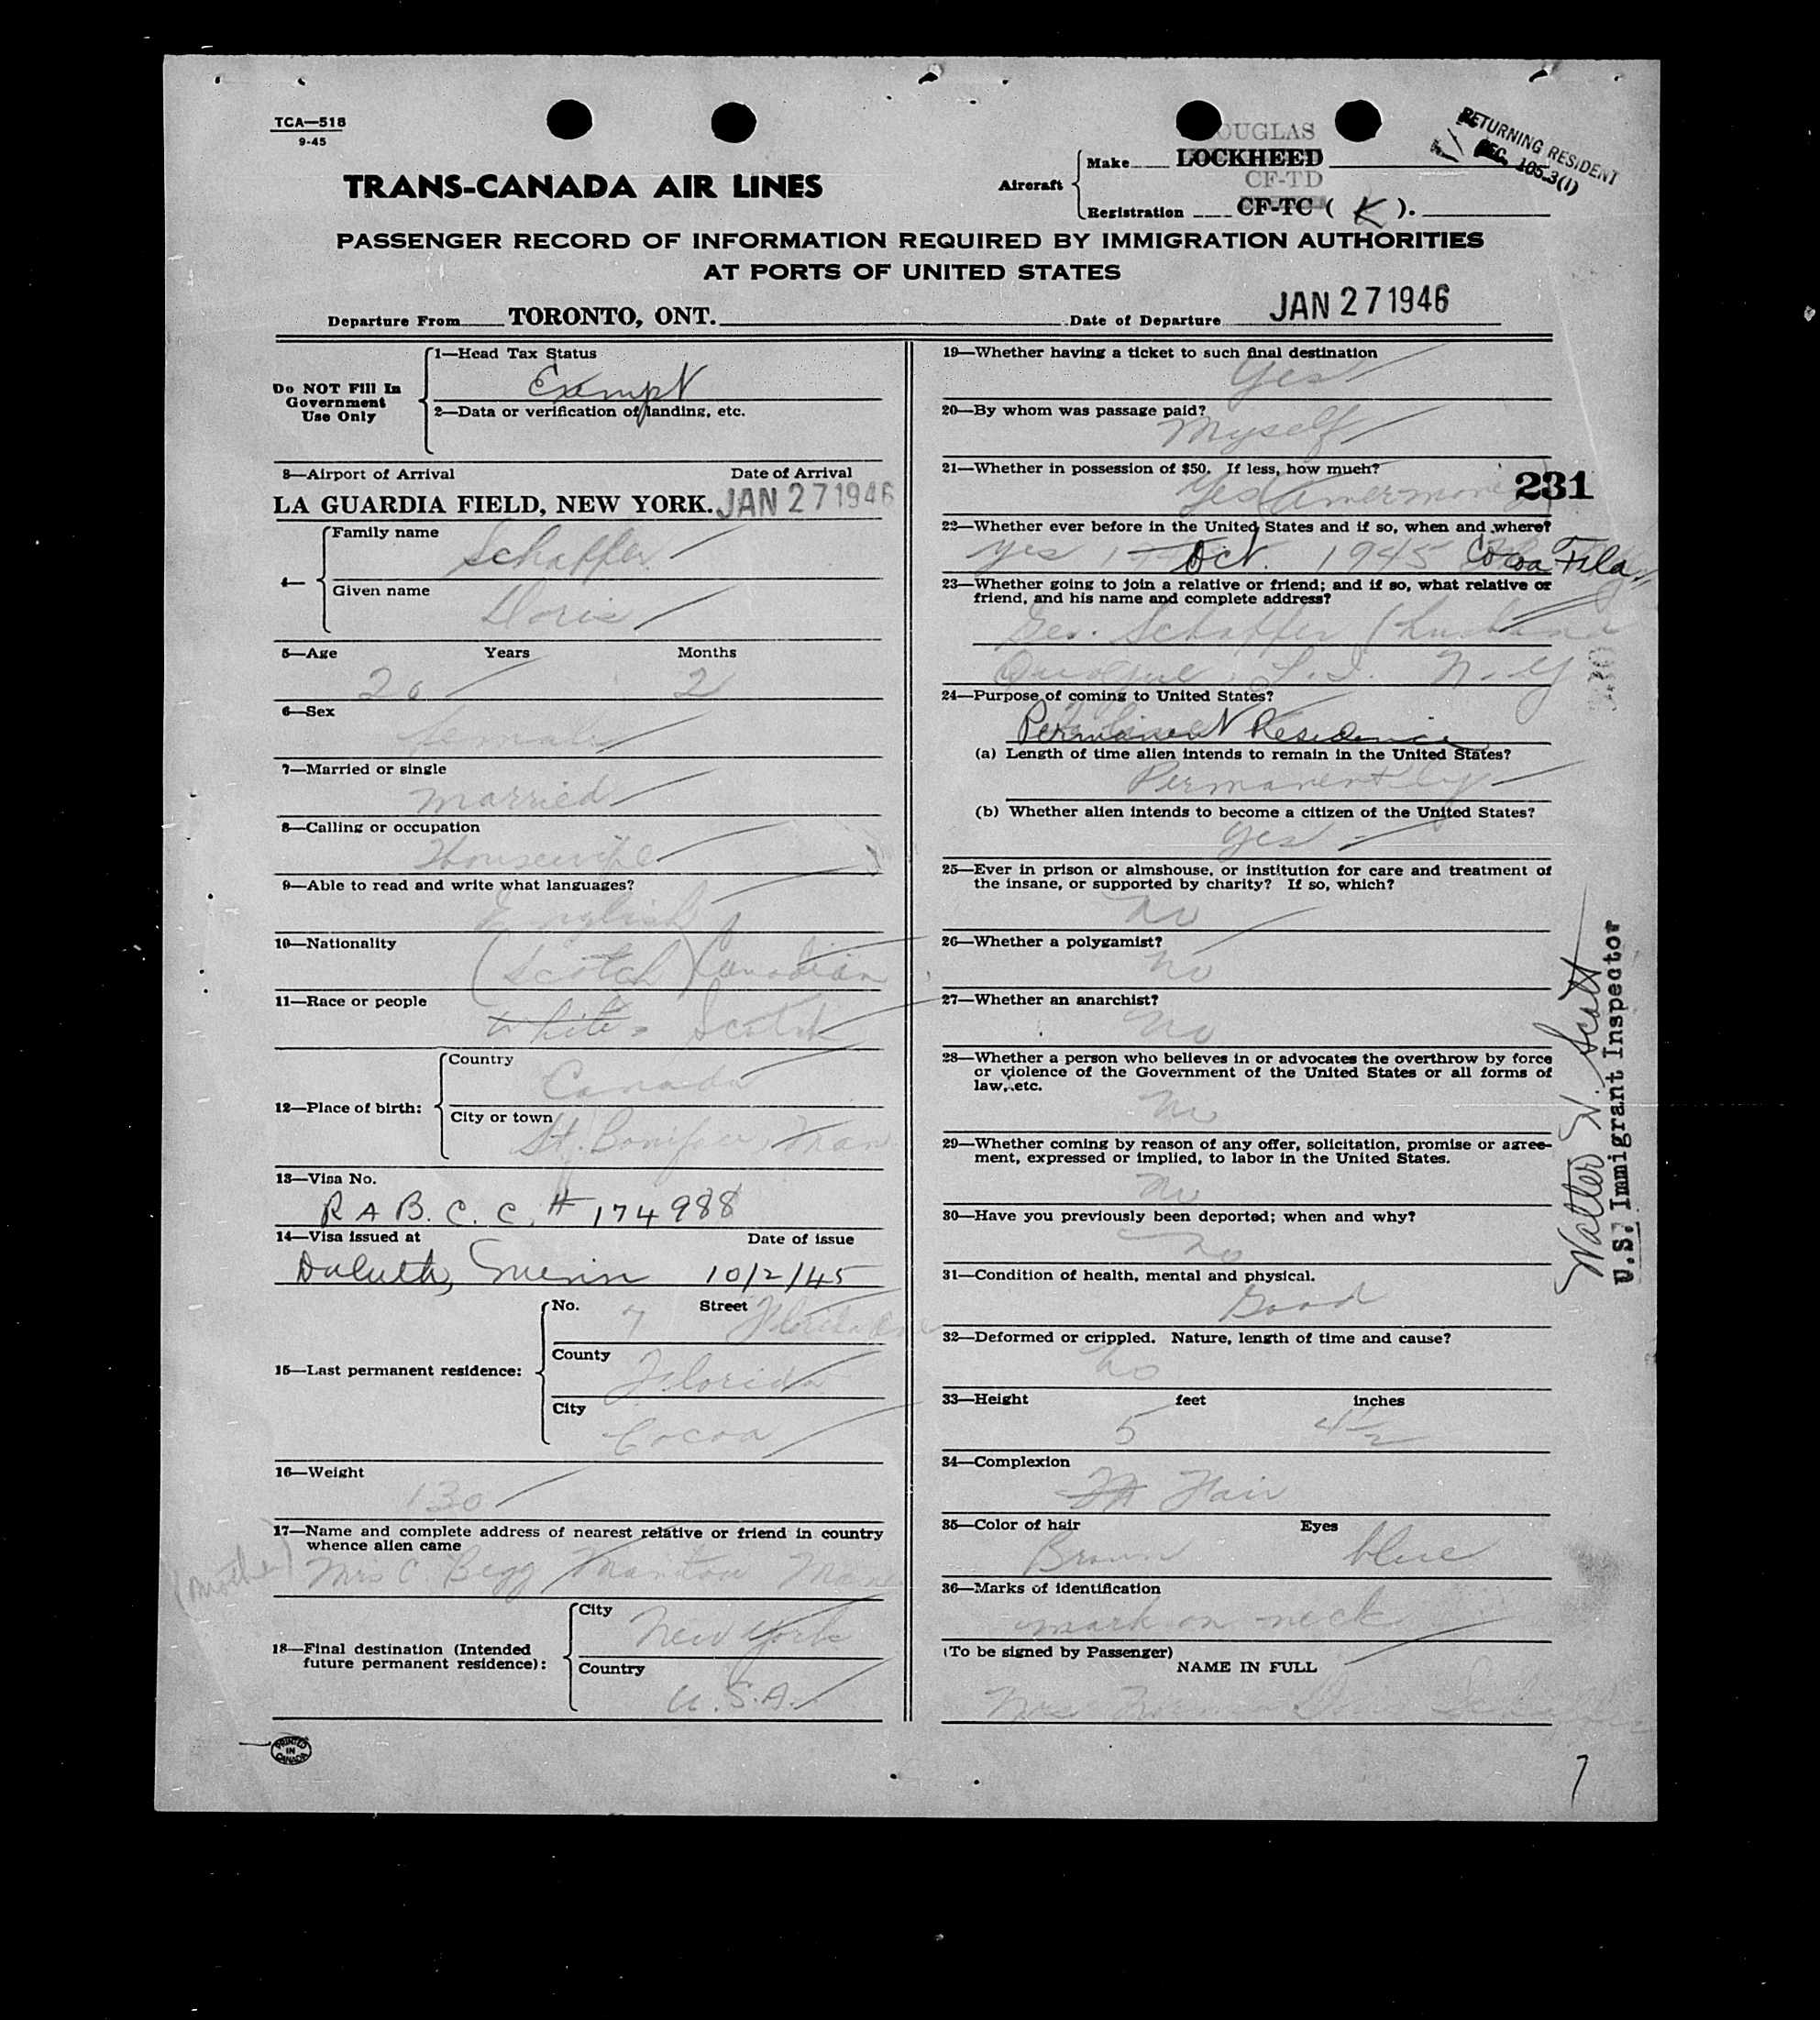 TCA—518
9-45
DOUGLAS
Aircraft
Make LOCKHEED
CF-TD
Registration CF-TC ( K ).
RETURNING RESIDENT
SEC. 105.3(1)
TRANS-CANADA AIR LINES
PASSENGER RECORD OF INFORMATION REQUIRED BY IMMIGRATION AUTHORITIES
AT PORTS OF UNITED STATES
Departure From TORONTO, ONT. Date of Departure JAN 27 1946
Do NOT Fill In
Government
Use Only
1—Head Tax Status
Exempt
2—Data or verification of landing, etc.
3—Airport of Arrival Date of Arrival
LA GUARDIA FIELD, NEW YORK. JAN 27 1946
4—
Family name
Schaffer
Given name
Doris
5—Age Years Months
20 2
6—Sex
female
7—Married or single
married
8—Calling or occupation
Housewife
9—Able to read and write what languages?
English
10—Nationality
(Scotch) Canadian
11—Race or people
White Scotch
12—Place of birth:
Country
Canada
City or town
St. Boniface, Man
13—Visa No.
R A B. C. C. # 174988
14—Visa issued at Date of issue
Duluth, Minn 10/2/45
15—Last permanent residence:
No. 7 Street Florida
County
Florida
City
Cocoa
16—Weight
130
17—Name and complete address of nearest relative or friend in country
whence alien came
(mother) Mrs C Begg Manitou Man
18—Final destination (Intended
future permanent residence):
City
New York
Country
U.S.A.
PRINTED
IN
CANADA
19—Whether having a ticket to such final destination
Yes
20—By whom was passage paid?
Myself
21—Whether in possession of $50. If less, how much?
Yes (Amer money)
231
22—Whether ever before in the United States and if so, when and where?
yes Oct. 1945 Cocoa Fla.
23—Whether going to join a relative or friend; and if so, what relative or
friend, and his name and complete address?
Geo. Schaffer (husband
Quogue L.I. N.Y
24—Purpose of coming to United States?
Permanent Residence
(a) Length of time alien intends to remain in the United States?
Permanently
(b) Whether alien intends to become a citizen of the United States?
yes
25—Ever in prison or almshouse, or institution for care and treatment of
the insane, or supported by charity? If so, which?
no
26—Whether a polygamist?
no
27—Whether an anarchist?
no
28—Whether a person who believes in or advocates the overthrow by force
or violence of the Government of the United States or all forms of
law, etc.
no
29—Whether coming by reason of any offer, solicitation, promise or agree-
ment, expressed or implied, to labor in the United States.
no
30—Have you previously been deported; when and why?
no
31—Condition of health, mental and physical.
Good
32—Deformed or crippled. Nature, length of time and cause?
no
33—Height feet inches
5 4½
34—Complexion
Fair
35—Color of hair Eyes
Brown blue
36—Marks of identification
mark on neck
(To be signed by Passenger)
NAME IN FULL
Mrs Doris Schaffer
Walter N. Scott
U.S. Immigrant Inspector
7